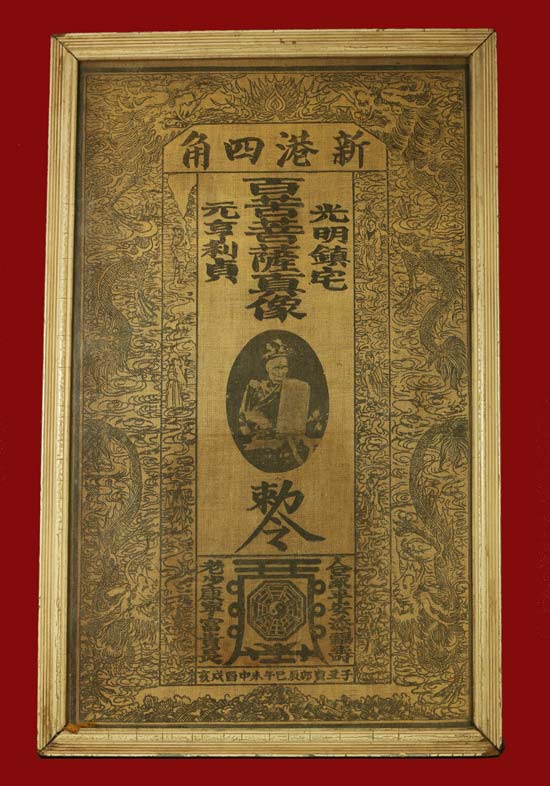 新港四角
光明鎮宅
百苦菩薩真像
元亨利貞
勅令
合家平安添福壽
老少康寧富貴
子丑寅卯辰巳午未申酉戌亥